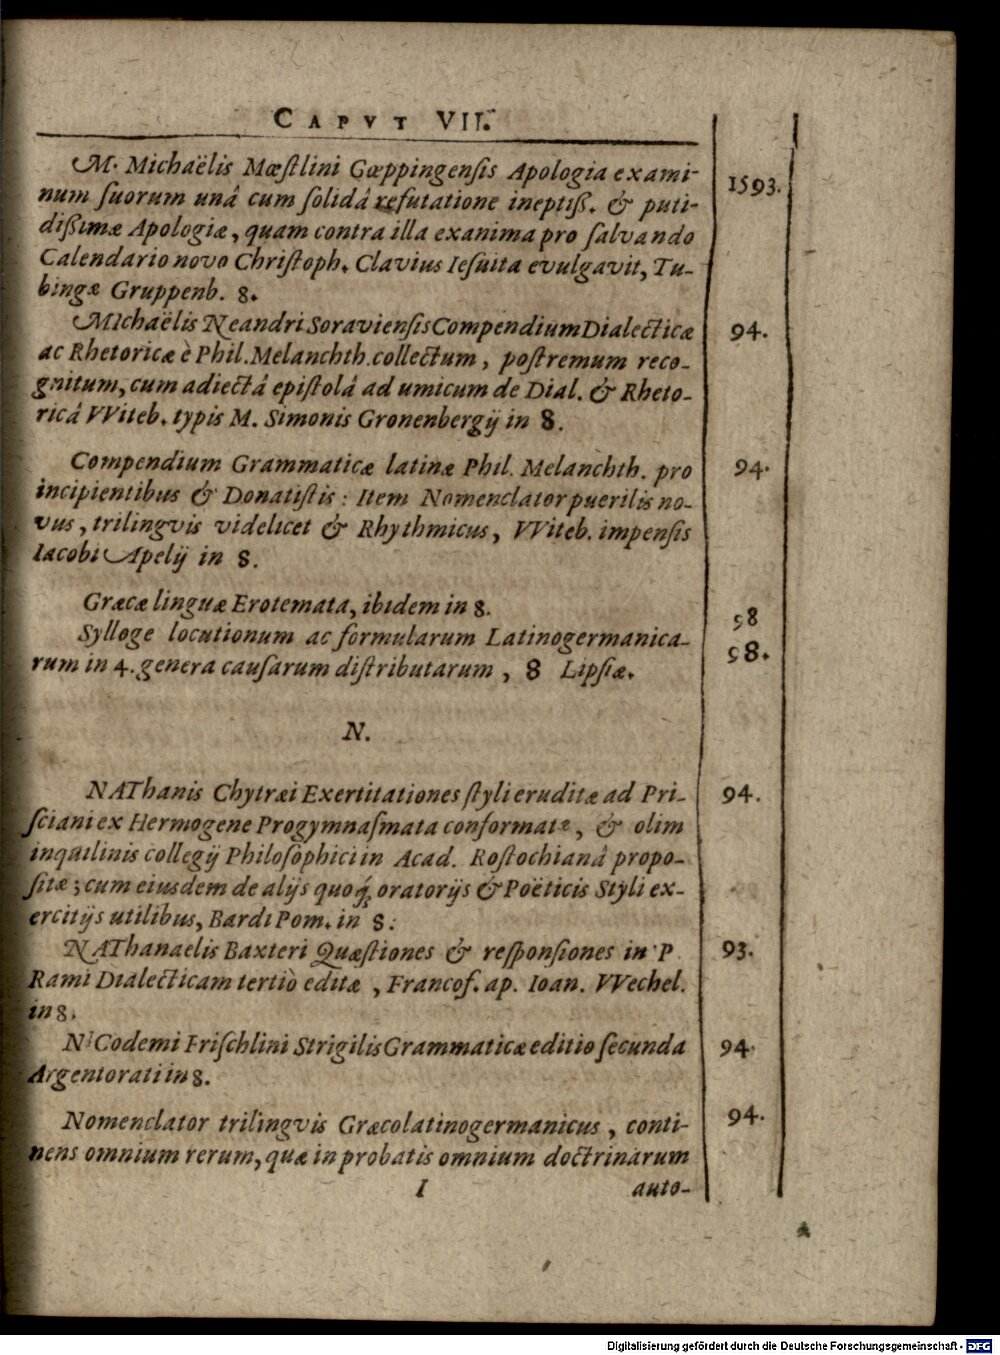 CAPVT VII.
M. Michaëlis Mœstlini Gœppingensis Apologia exami- 1593.
num suorum unâ cum solidâ refutatione ineptiß. & puti-
dißimæ Apologiæ, quam contra illa exanima pro salvando
Calendario novo Christoph. Clavius Iesuita evulgavit, Tu-
bingæ Gruppenb. 8.
MIchaëlis Neandri Soraviensis Compendium Dialecticæ 94.
ac Rhetoricæ è Phil. Melanchth. collectum, postremum reco-
gnitum, cum adiectâ epistolâ ad umicum de Dial. & Rheto-
ricâ VViteb. typis M. Simonis Gronenbergij in 8.
Compendium Grammaticæ latinæ Phil. Melanchth. pro 94.
incipientibus & Donatistis: Item Nomenclator puerilis no-
vus, trilingvis videlicet & Rhythmicus, VViteb. impensis
Iacobi Apelij in 8.
Græcæ linguæ Erotemata, ibidem in 8. 98
Sylloge locutionum ac formularum Latinogermanica- 98.
rum in 4. genera causarum distributarum, 8 Lipsiæ.
N.
NAThanis Chytræi Exertitationes styli eruditæ ad Pri- 94.
sciani ex Hermogene Progymnasmata conformatæ, & olim
inquilinis collegij Philosophici in Acad. Rostochianâ propo-
sitæ; cum eiusdem de alijs quoq́; oratorijs & Poëticis Styli ex-
ercitijs utilibus, Bardi Pom. in 8:
NAThanaelis Baxteri Quæstiones & responsiones in P 93.
Rami Dialecticam tertiò editæ, Francof. ap. Ioan. VVechel.
in 8.
NICodemi Frischlini Strigilis Grammaticæ editio secunda 94.
Argentorati in 8.
Nomenclator trilingvis Græcolatinogermanicus, conti- 94.
nens omnium rerum, quæ in probatis omnium doctrinarum
I auto-
Digitalisierung gefördert durch die Deutsche Forschungsgemeinschaft - DFG